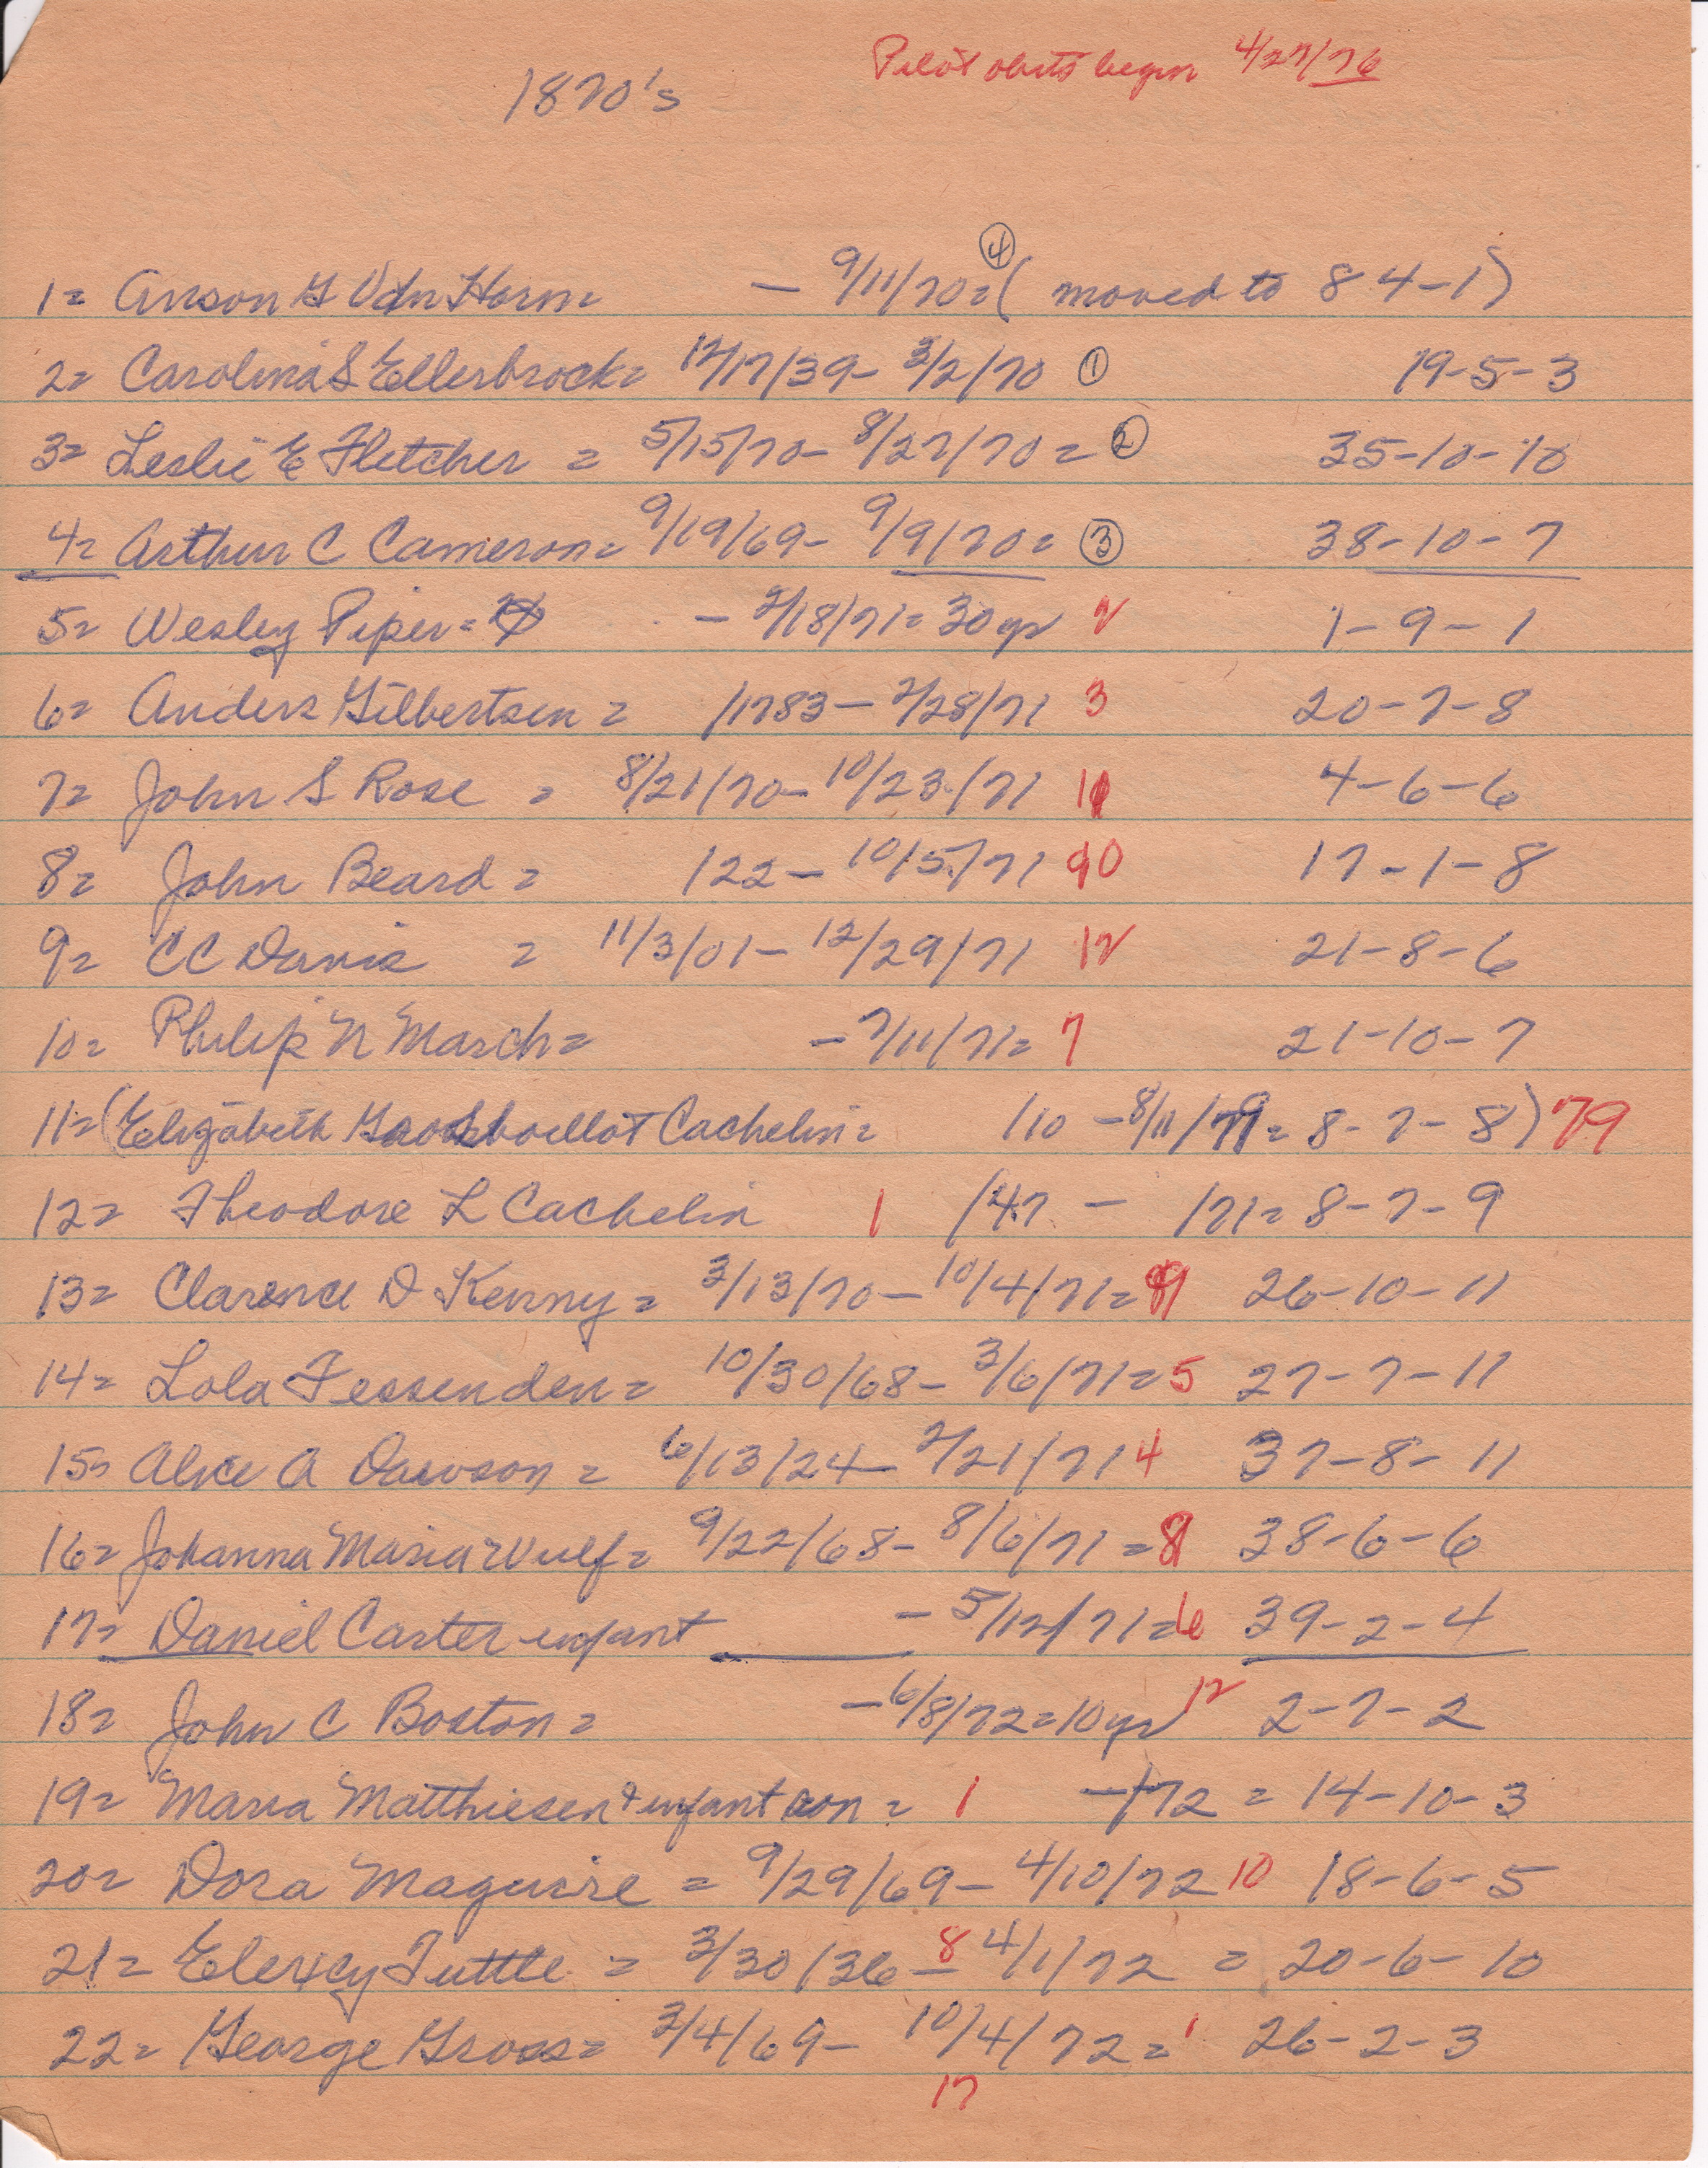 Pilot obits begin 4/27/76
1870's
1= Anson G Van Horn= - 9/11/70= ④ ( moved to 84-1)
2= Carolina S Ellerbrock= 12/17/39- 3/2/70 ① 19-5-3
3= Leslie E Fletcher = 5/15/70- 8/27/70= ② 35-10-10
4= Arthur C Cameron= 9/19/69- 9/9/70= ③ 38-10-7
5= Wesley Piper= - 2/18/71= 30 yr 2 1-9-1
6= Anders Gilbertsen= /1783- 2/28/71 3 20-7-8
7= John S Rose = 8/21/70- 10/23/71 11 4-6-6
8= John Beard= /22- 10/5/71 10 17-1-8
9= CC Davis = 11/3/01- 12/29/71 12 21-8-6
10= Philip N March= - 7/11/71= 7 21-10-7
11= (Elizabeth Cachelin= /10 - 8/11/79= 8-7-8) 79
12= Theodore L Cachelin 1 /47 - /71= 8-7-9
13= Clarence D Kenny= 3/13/70- 10/4/71= 9 26-10-11
14= Lola Fessenden= 10/30/68- 3/6/71= 5 27-7-11
15= Alice A Dawson= 6/13/24- 2/21/71 4 37-8-11
16= Johanna Maria Wulf= 9/22/68- 8/6/71= 8 38-6-6
17= Daniel Carter infant - 5/12/71= 6 39-2-4
18= John C Boston= - 6/8/72=10 yr 12 2-7-2
19= Maria Matthiesen & infant son= 1 - /72 = 14-10-3
20= Dora Maguire = 9/29/69- 4/10/72 10 18-6-5
21= Elexcy Tuttle = 3/30/36- 8 4/1/72 = 20-6-10
22= George Gross= 3/4/69- 10/4/72= 1 26-2-3
17